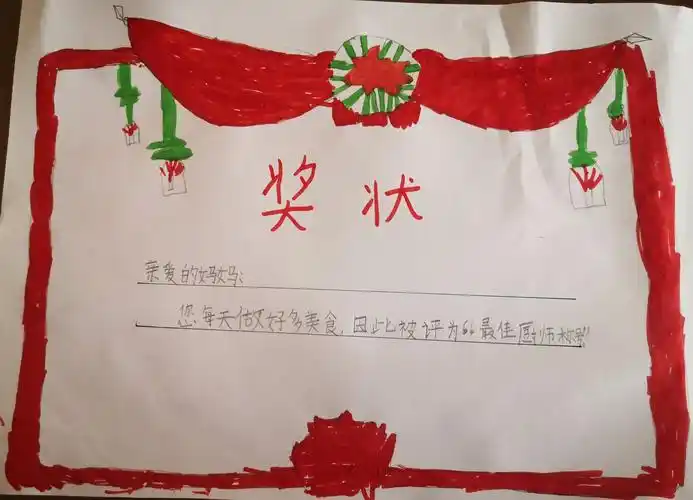 奖状
亲爱的妈妈:
您每天做好多美食,因此被评为“最佳厨师称号”